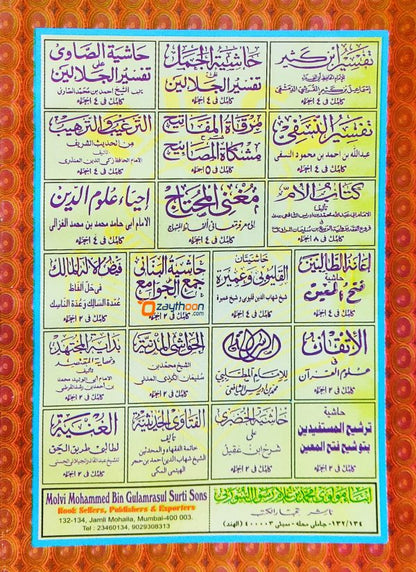 حاشية الصاوي
على
تفسير الجلالين
تأليف الشيخ أحمد بن محمد الصاوي
كاملا في ٤ أجزاء
حاشية الجمل
على
تفسير الجلالين
كاملا في ٤ أجزاء
تفسير ابن كثير
كاملا في ٤ أجزاء
الترغيب والترهيب
من الحديث الشريف
تأليف
الإمام الحافظ زكي الدين المنذري
كاملا في ٤ أجزاء
مرقاة المفاتيح
مشكاة المصابيح
كاملا في ٥ أجزاء
تفسير النسفي
عبدالله بن أحمد بن محمود النسفي
كاملا في ٤ أجزاء
إحياء علوم الدين
الامام أبي حامد محمد بن محمد الغزالي
كاملا في ٤ أجزاء
مغني المحتاج
كاملا في ٤ أجزاء
كتاب الأم
كاملا في ٨ أجزاء
فيض الإله المالك
في حل ألفاظ
عمدة السالك وعدة الناسك
كاملا في ٢ أجزاء
حاشية البناني
على
جمع الجوامع
كاملا في ٢ أجزاء
حاشيتان
القليوبي وعميرة
شيخ شهاب الدين قليوبي وشيخ عميرة
كاملا في ٤ أجزاء
إعانة الطالبين
حاشية
فتح المعين
كاملا في ٤ أجزاء
بداية المجتهد
ونهاية المقتصد
كاملا في ٢ أجزاء
الحواشي المدنية
الشيخ محمد بن
سليمان الكردي المدني
كاملا في ٢ أجزاء
الرسالة
للإمام المطلبي
محمد بن إدريس الشافعي
الإتقان
في
علوم القرآن
كاملا في ٢ أجزاء
الغنية
لطالبي طريق الحق
كاملا في ٢ أجزاء
الفتاوى الحديثية
تأليف
خاتمة الفقهاء والمحدثين
الشيخ شهاب الدين أحمد بن حجر
الهيتمي المكي
حاشية الخضري
على
شرح ابن عقيل
كاملا في ٢ أجزاء
حاشية
ترشيح المستفيدين
بتوشيح فتح المعين
كاملا في ٢ أجزاء
Ozaythoon
.com
Molvi Mohammed Bin Gulamrasul Surti Sons
Book Sellers, Publishers & Exporters
132-134, Jamli Mohalla, Mumbai-400 003.
Tel : 23460134, 9029308313
أبناء مولوي محمد بن غلام رسول السورتي
ناشر تجار الكتب
١٣٢/١٣٤، جاملي محله - ممبئي ٤٠٠٠٠٣ (الهند)